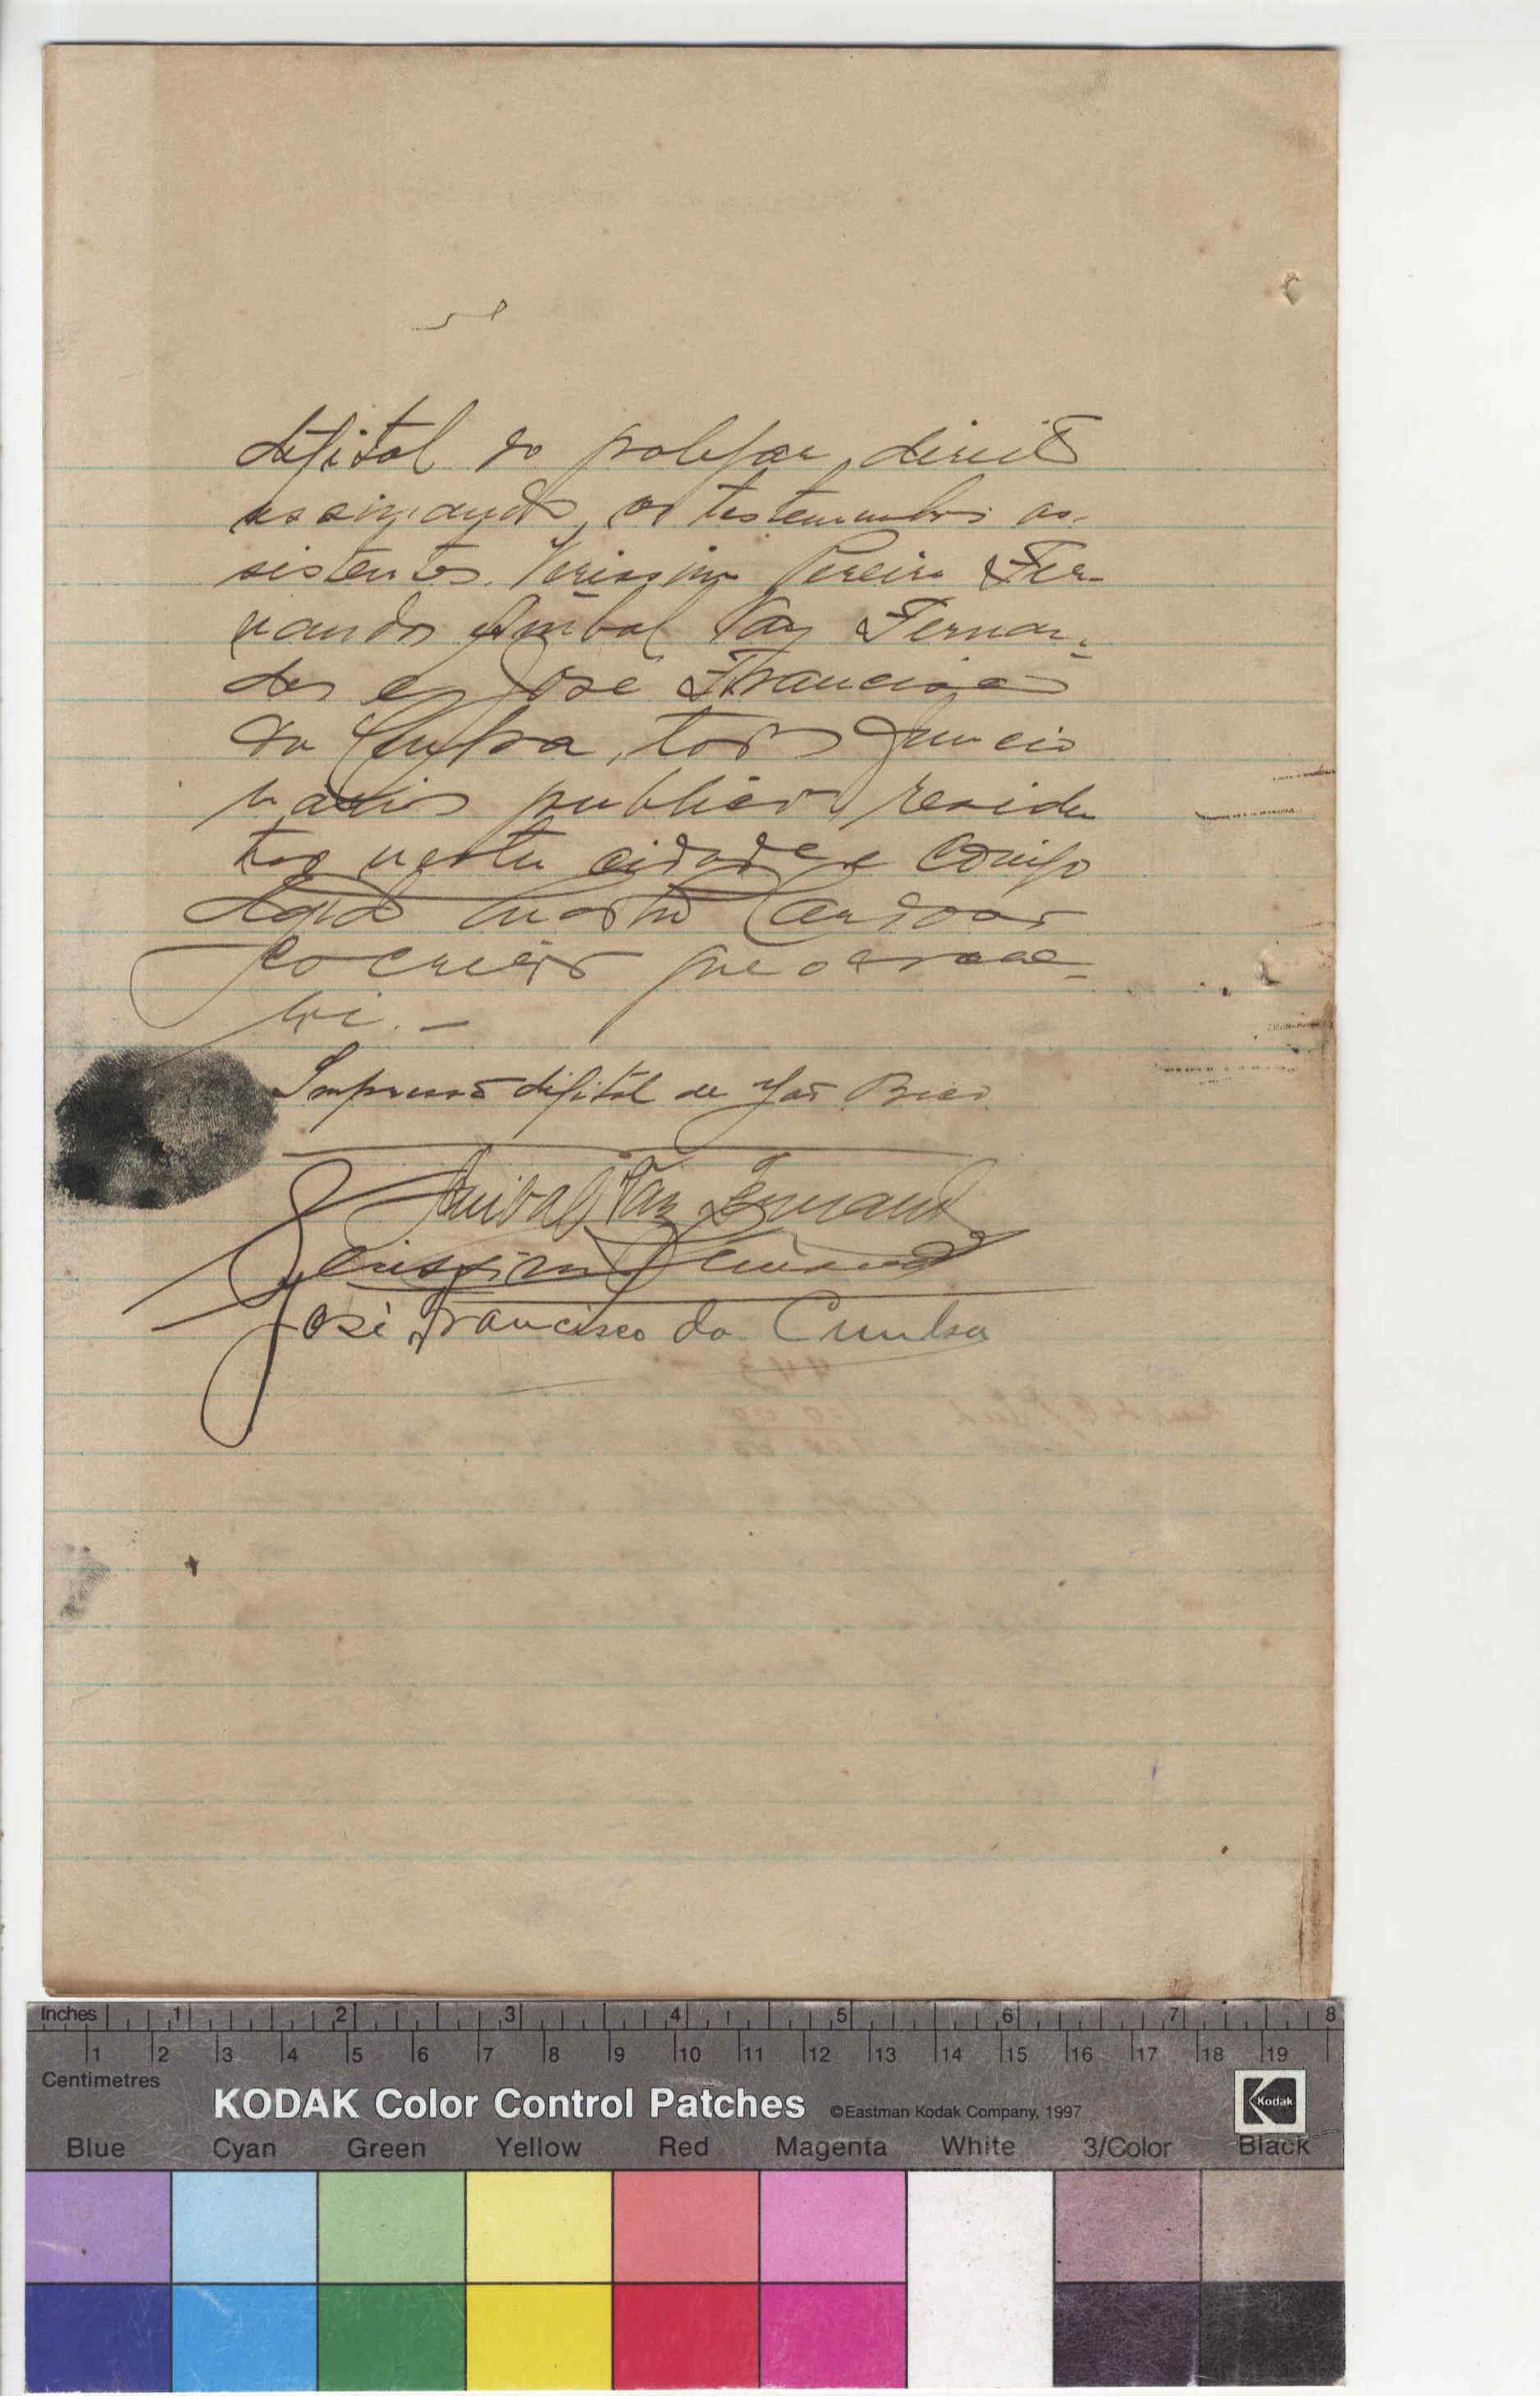 digital do polegar direito
assignando, as testemunhas as-
sistentes. Verissimo Pereira Fer-
nandes Anibal Vaz Fernan-
des e José Francisco
da Cunha, todos funcio
narios publicos residen
tes nesta cidade e comigo
Cardoso
escrivão que o escre-
vi. —
Impressão digital de João Bico
Anibal Vaz Fernandes
José Francisco da Cunha
Inches 1 2 3 4 5 6 7 8
1 2 3 4 5 6 7 8 9 10 11 12 13 14 15 16 17 18 19
Centimetres
KODAK Color Control Patches ©Eastman Kodak Company, 1997 Kodak
Blue Cyan Green Yellow Red Magenta White 3/Color Black